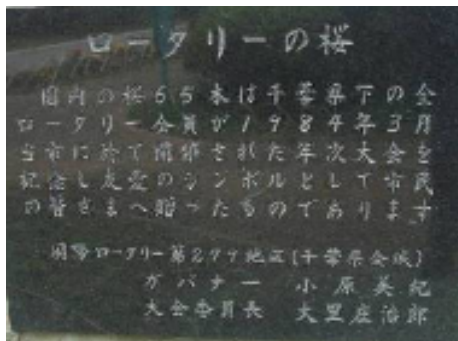 ロータリーの桜
園内の桜65本は千葉県下の全
ロータリー会員が1984年3月
当市に於て開催された年次大会を
記念し友愛のシンボルとして市民
の皆さまへ贈ったものであります
国際ロータリー第277地区(千葉県全域)
ガバナー 小原美紀
大会委員長 大里庄治郎